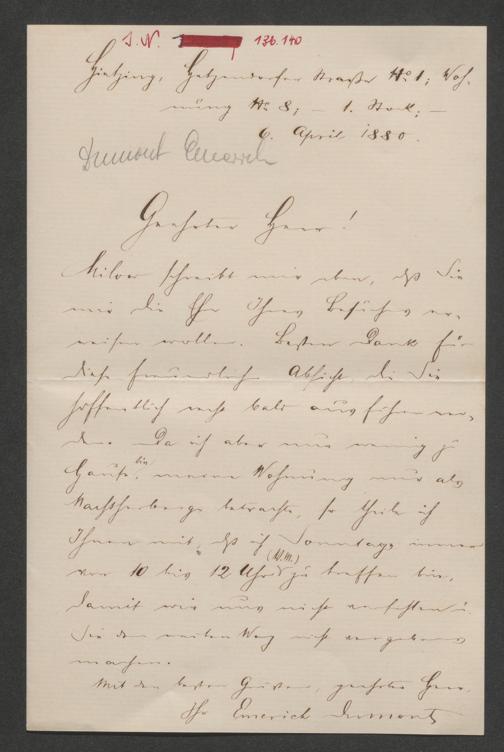 J. N. 136.140
Hietzing, Hetzendorfer Straße No 1; Woh-
nung No 8; – 1. Stock; –
6. April 1880.
Dumont Emerich
Geehrter Herr!
Milow schreibt mir eben, daß Sie
mir die Ehre Ihres Besuches er-
weisen wollen. Besten Dank für
diese freundliche Absicht, die Sie
hoffentlich recht bald ausführen wer-
den. Da ich aber nur wenig zu
Hause bin, meine Wohnung nur als
Nachtherberge betrachte, so theile ich
Ihnen mit, daß ich Sonntags immer
von 10 bis 12 Uhr (M.) zu treffen bin,
damit wir uns nicht verfehlen u.
Sie den weiten Weg nicht vergebens
machen.
Mit den besten Grüßen, geehrter Herr,
Ihr Emerich Dumont